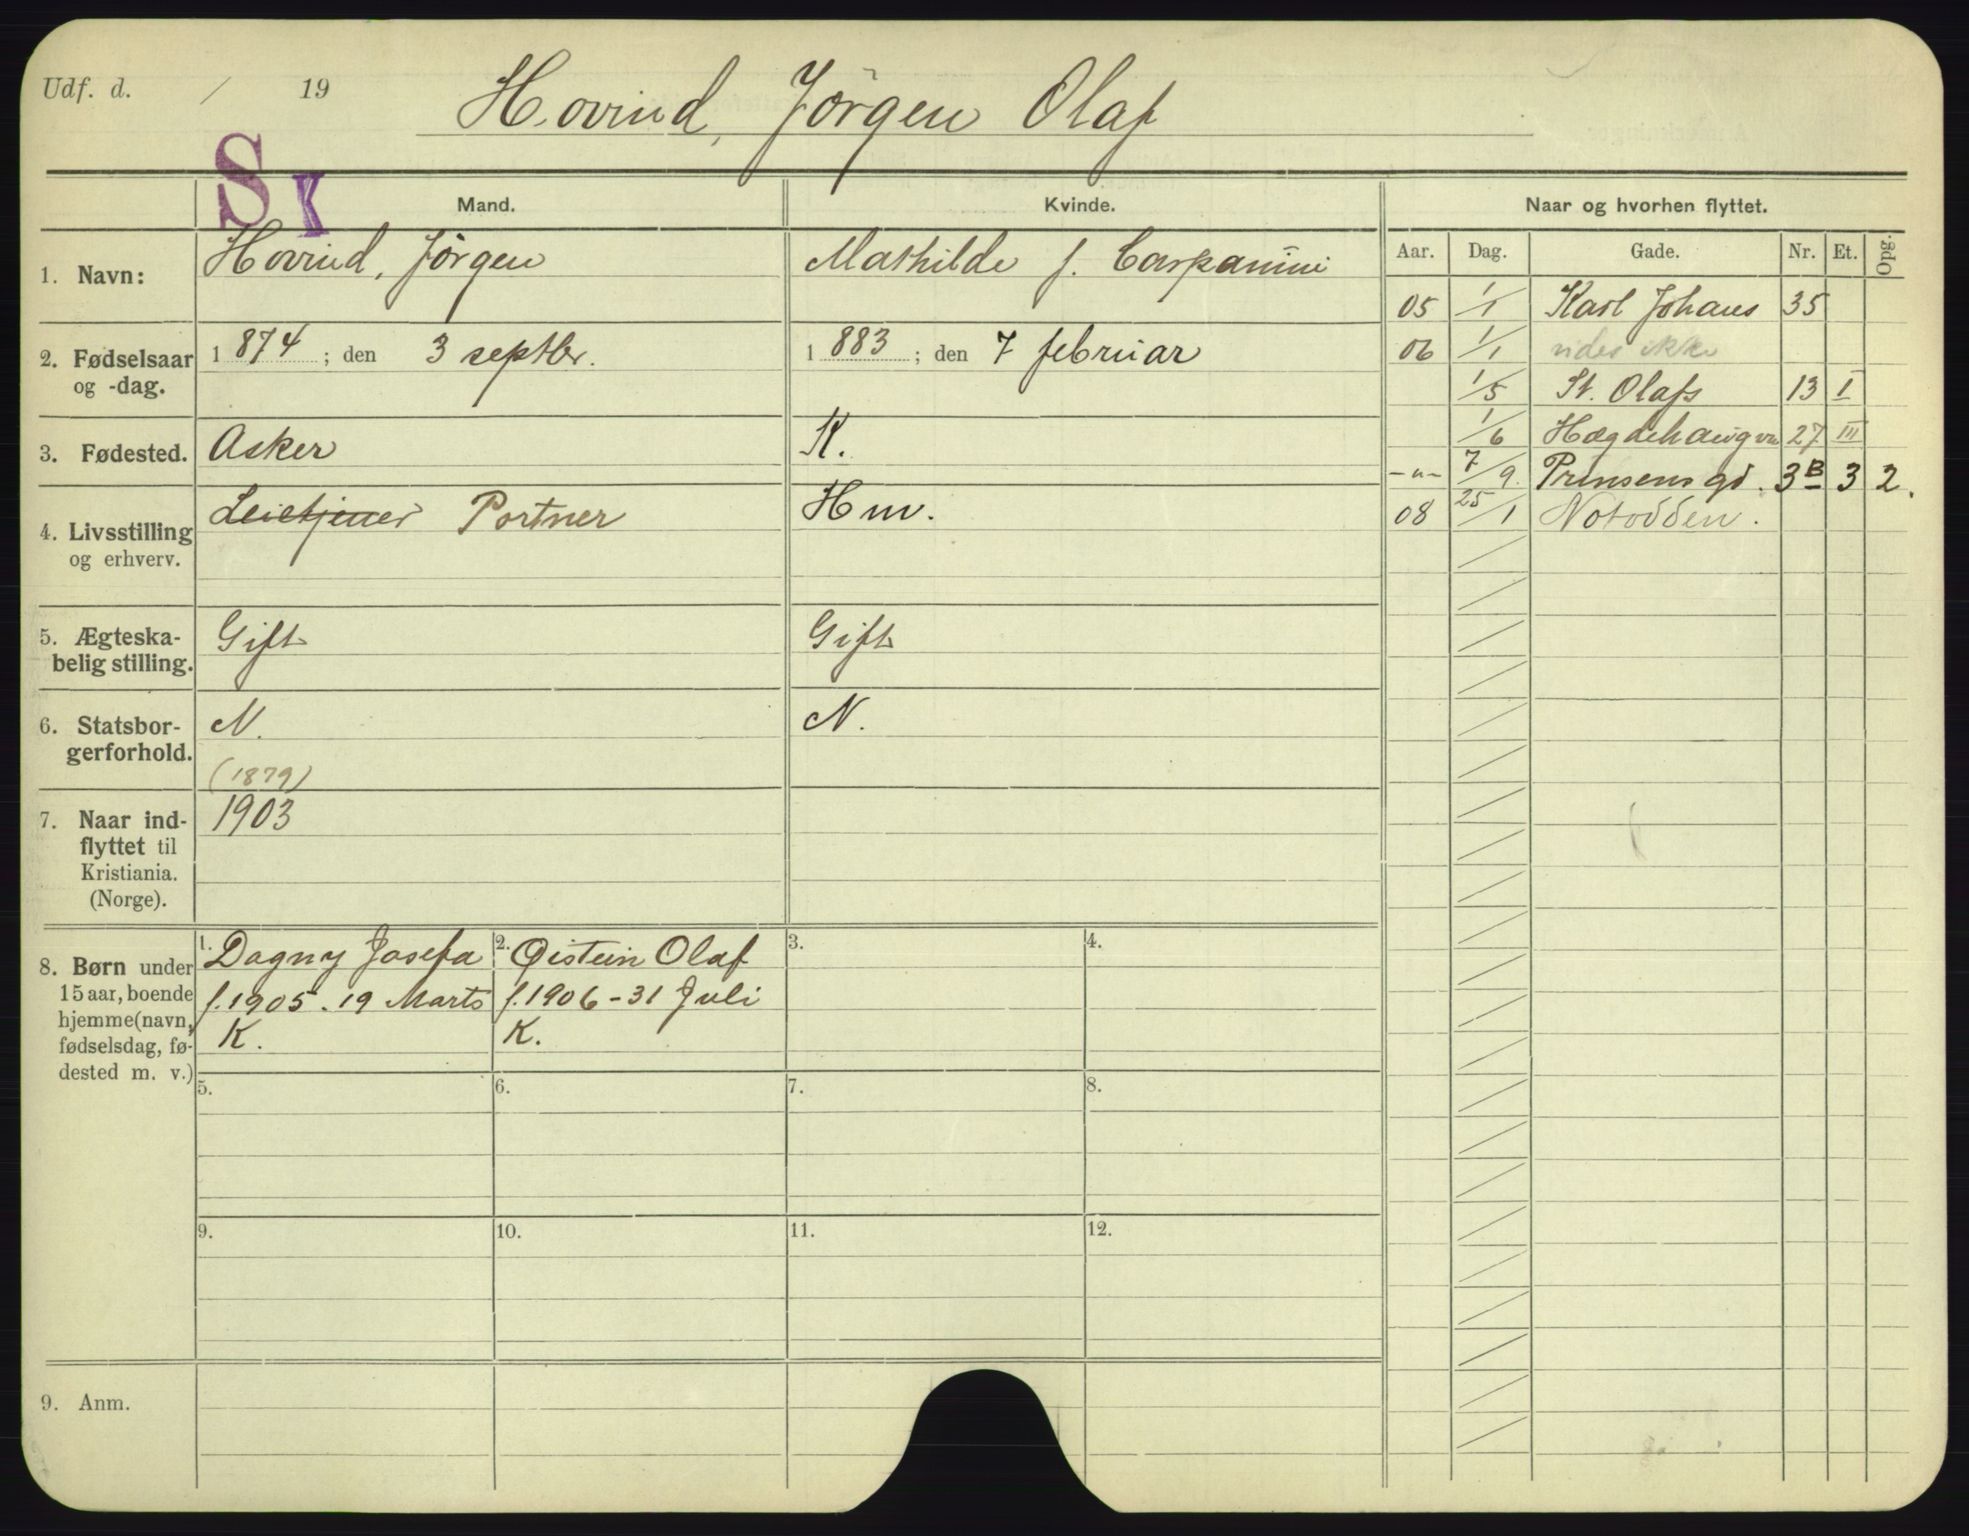 Udf. d. / 19 Hovind, Jörgen Olaf
S K
Mand. Kvinde. Naar og hvorhen flyttet.
Aar. Dag. Gade. Nr. Et. Opg.
1. Navn: Hovind, Jörgen Mathilde f.
2. Fødselsaar og -dag. 1874; den 3 septbr. 1883; den 7 februar
3. Fødested. Asker K.
4. Livsstilling og erhverv. Leietjener Portner Hm.
5. Ægteska-
belig stilling. Gift Gift
6. Statsbor-
gerforhold. N. N.
(1879)
7. Naar ind-
flyttet til
Kristiania.
(Norge). 1903
8. Børn under
15 aar, boende
hjemme (navn,
fødselsdag, fø-
dested m. v.)
1. Dagny Josefa
f. 1905. 19 Marts
K.
2. Øistein Olaf
f. 1906 - 31 Juli
K.
3.
4.
5.
6.
7.
8.
9.
10.
11.
12.
9. Anm.
05 1/1 Karl Johans 35
06 1/1 ikke
1/5 St. Olafs 13 I
1/6 Hægdehaugvn 27 III
-"- 7/9. Prinsens gd. 3B 3 2.
08 25/1 Notodden.